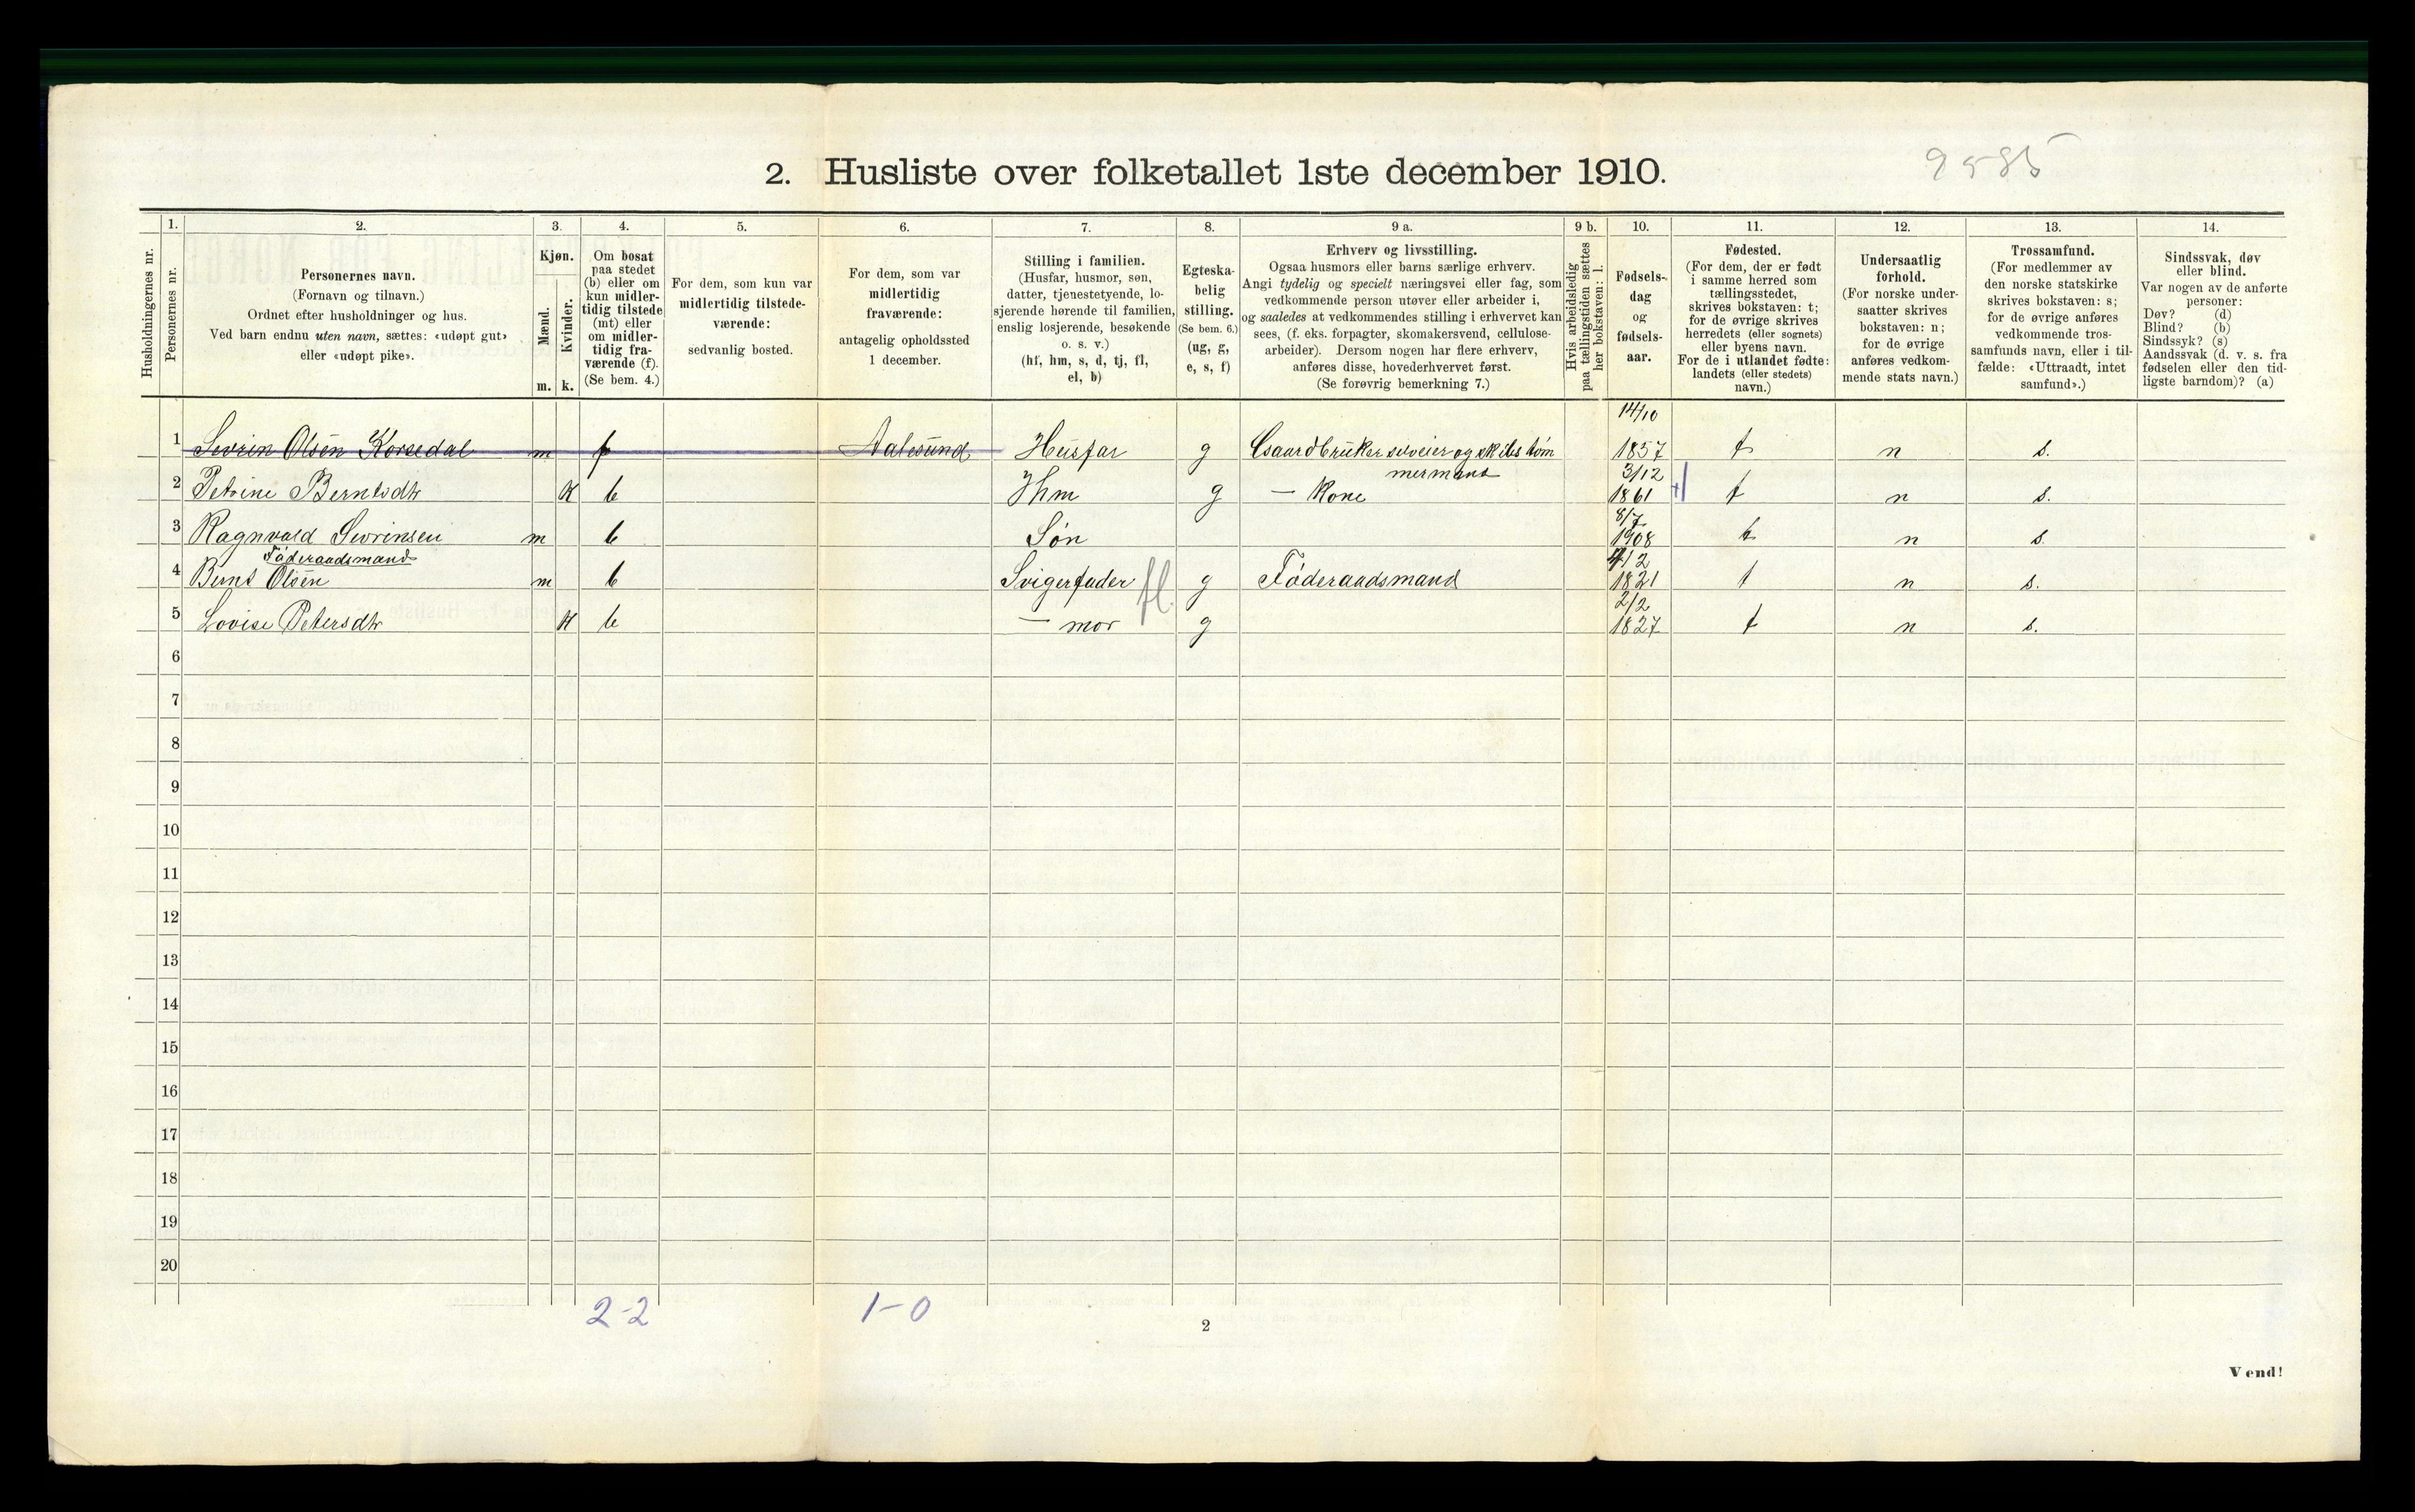 9585
2. Husliste over folketallet 1ste december 1910.
Husholdningernes nr.
1.
Personernes nr.
2.
Personernes navn.
(Fornavn og tilnavn.)
Ordnet efter husholdninger og hus.
Ved barn endnu uten navn, sættes: «udøpt gut»
eller «udøpt pike».
3.
Kjøn.
Mænd.
Kvinder.
m. k.
4.
Om bosat
paa stedet
(b) eller om
kun midler-
tidig tilstede
(mt) eller
om midler-
tidig fra-
værende (f).
(Se bem. 4.)
5.
For dem, som kun var
midlertidig tilstede-
værende:
sedvanlig bosted.
6.
For dem, som var
midlertidig
fraværende:
antagelig opholdssted
1 december.
7.
Stilling i familien.
(Husfar, husmor, søn,
datter, tjenestetyende, lo-
sjerende hørende til familien,
enslig losjerende, besøkende
o. s. v.)
(hf, hm, s, d, tj, fl,
el, b)
8.
Egteska-
belig
stilling.
(Se bem. 6.)
(ug, g,
e, s, f)
9 a.
Erhverv og livsstilling.
Ogsaa husmors eller barns særlige erhverv.
Angi tydelig og specielt næringsvei eller fag, som
vedkommende person utøver eller arbeider i,
og saaledes at vedkommendes stilling i erhvervet kan
sees, (f. eks. forpagter, skomakersvend, cellulose-
arbeider). Dersom nogen har flere erhverv,
anføres disse, hovederhvervet først.
(Se forøvrig bemerkning 7.)
9 b.
Hvis arbeidsledig
paa tællingstiden sættes
her bokstaven: l.
10.
Fødsels-
dag
og
fødsels-
aar.
11.
Fødested.
(For dem, der er født
i samme herred som
tællingsstedet,
skrives bokstaven: t;
for de øvrige skrives
herredets (eller sognets)
eller byens navn.
For de i utlandet fødte:
landets (eller stedets)
navn.)
12.
Undersaatlig
forhold.
(For norske under-
saatter skrives
bokstaven: n;
for de øvrige
anføres vedkom-
mende stats navn.)
13.
Trossamfund.
(For medlemmer av
den norske statskirke
skrives bokstaven: s;
for de øvrige anføres
vedkommende tros-
samfunds navn, eller i til-
fælde: «Uttraadt, intet
samfund».)
14.
Sindssvak, døv
eller blind.
Var nogen av de anførte
personer:
Døv? (d)
Blind? (b)
Sindssyk? (s)
Aandssvak (d. v. s. fra
fødselen eller den tid-
ligste barndom)? (a)
14/10
1 Sivrin Olsen Korsedal m f Aalesund Husfar g Gaardbruker selveier og skibstøm 1857 t n s.
mermand 3/12
2 Petrine Berntsdtr K b Hm g — Kone 1861 t n s.
8/7
3 Ragnvald Sivrinsen m b Søn 1908 t n s.
Føderaadsmand 12
4 Bernt Olsen m b Svigerfader fl. g Føderaadsmand 1821 t n s.
2/2
5 Lovise Petersdtr K b — mor g 1827 t n s.
6
7
8
9
10
11
12
13
14
15
16
17
18
19
20
2-2 1-0
2
Vend!